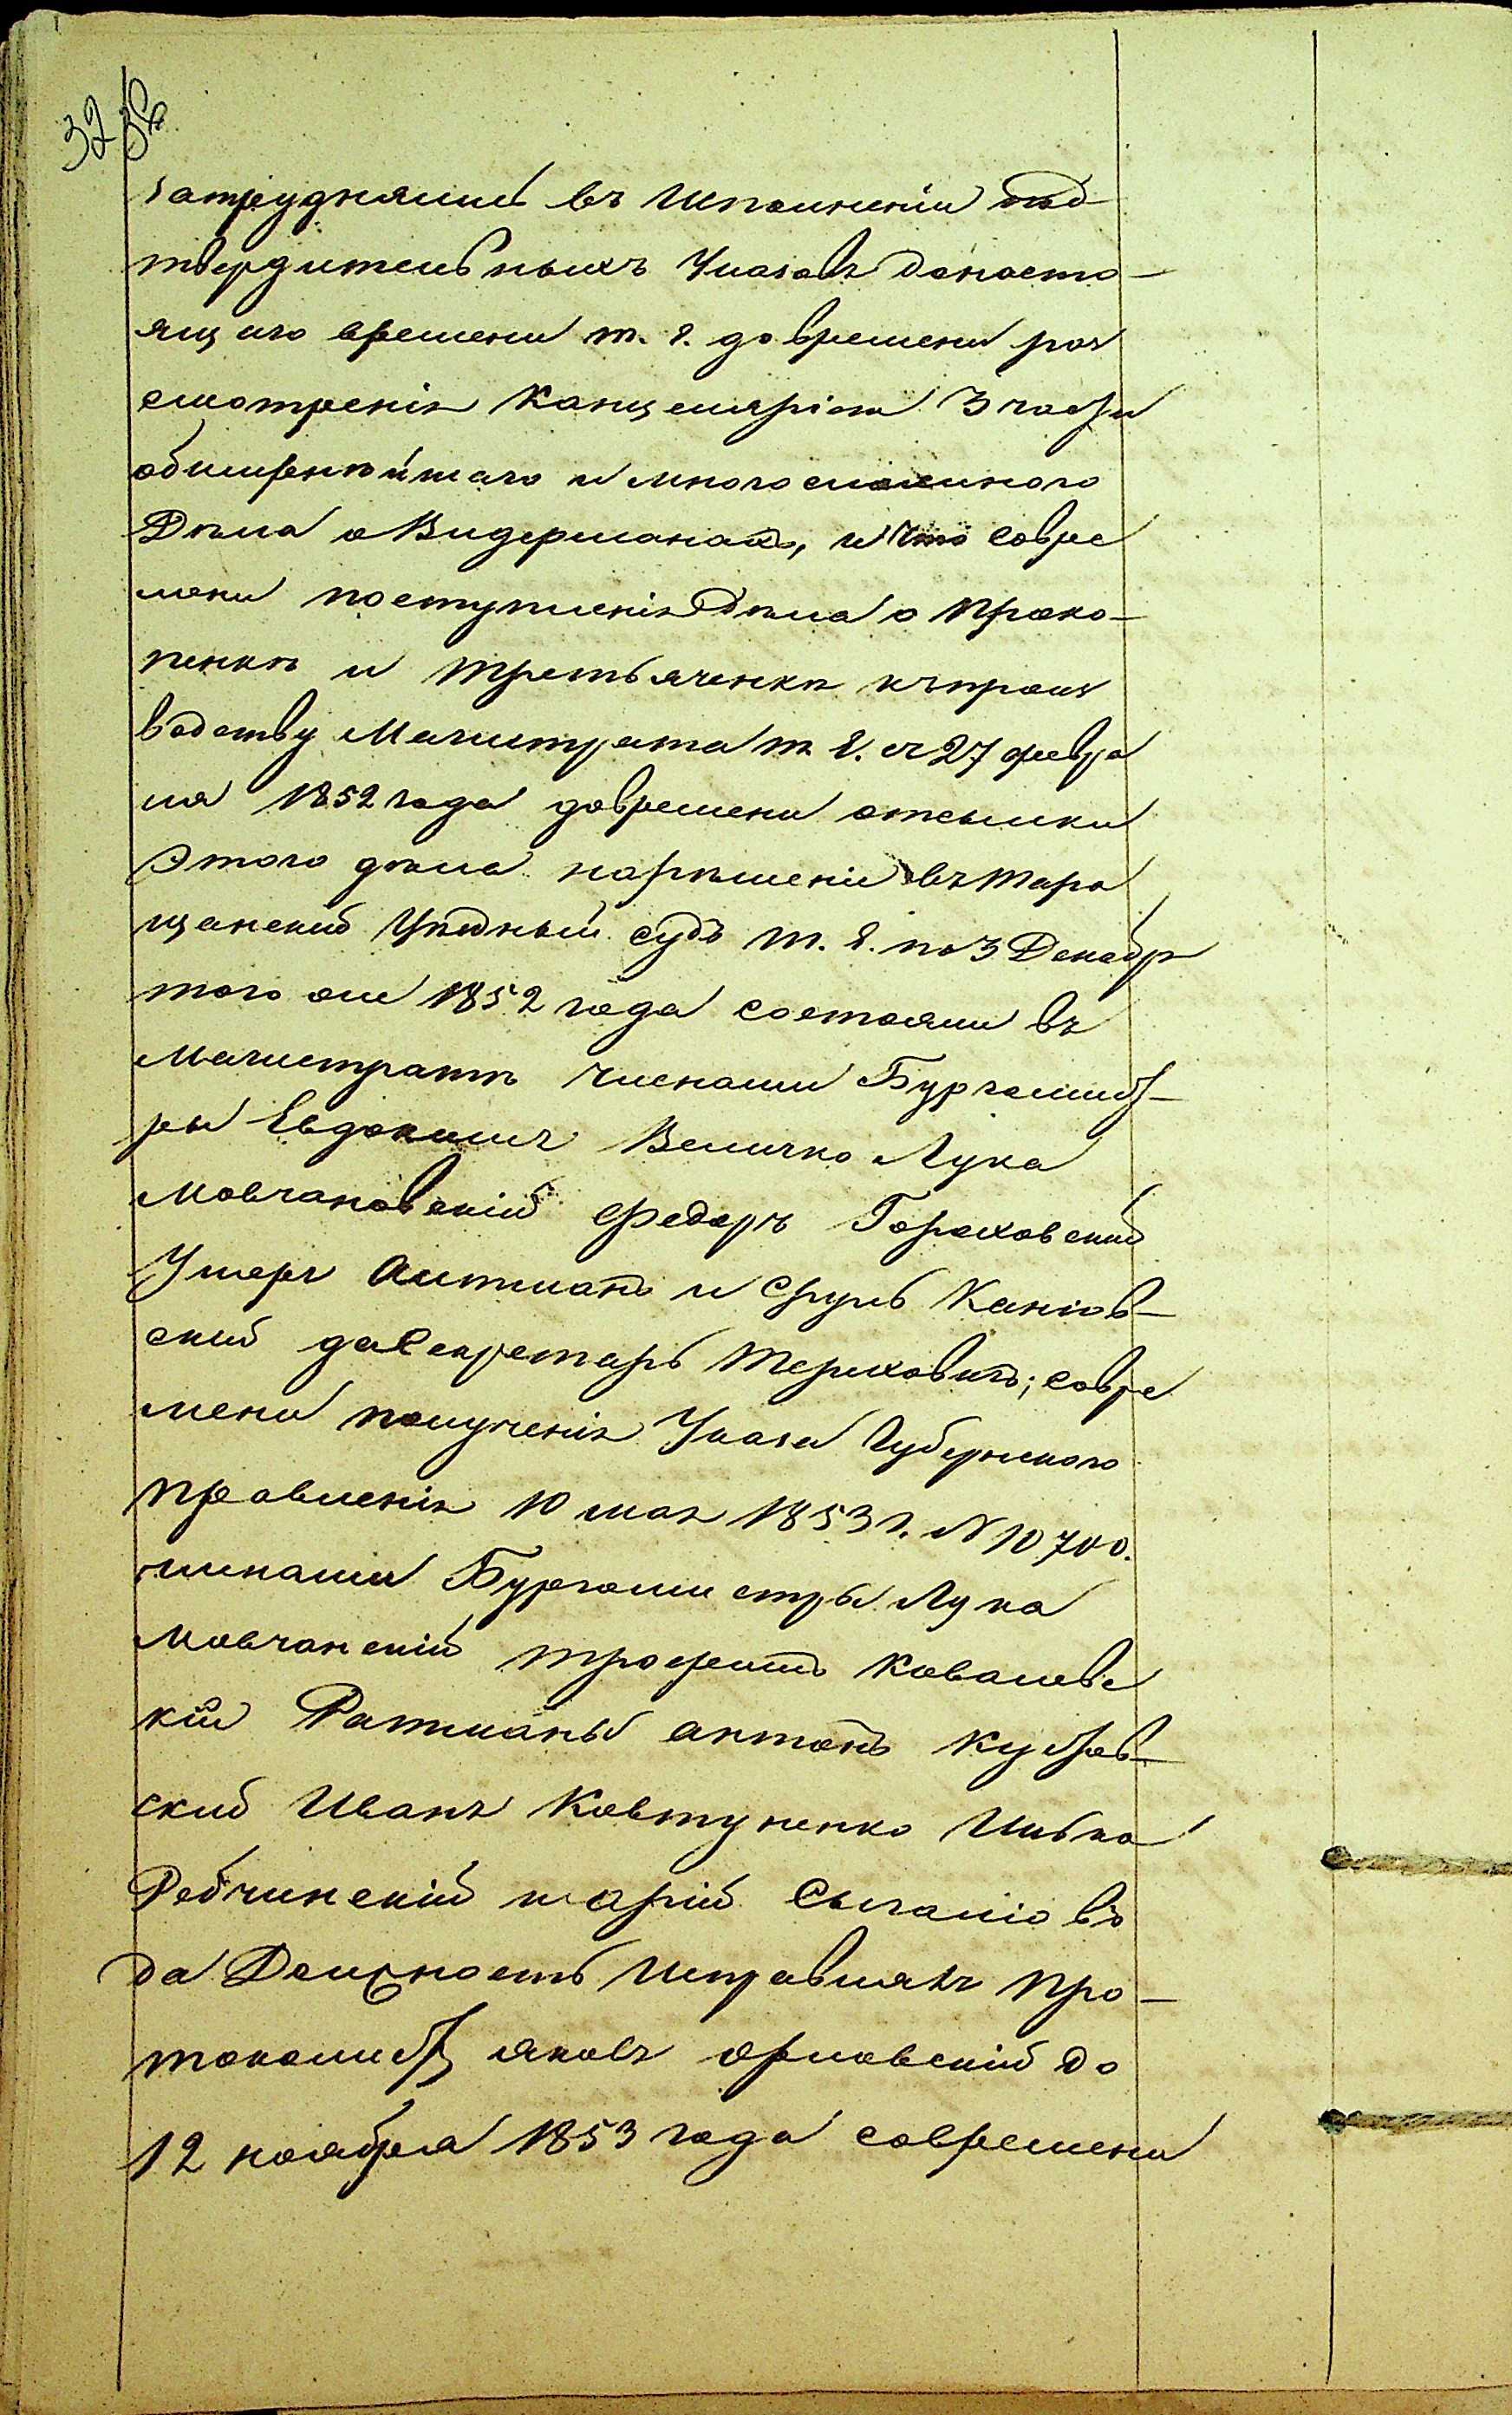 32
затрудняли въ Исполненіи под
твердительныхъ Указовъ донасто-
ящаго времени т. е. до времени рас
смотренія Канцеляріею 3 части
обширнѣйшаго и многосложнаго
Дѣла о Видерманахъ, и что совре
мени поступленія Дѣла о Проко-
пенкѣ и Третьяченкѣ къ произ
водству Магистрата т. е. съ 27 февра
ля 1852 года до времени отсылки
Этого дѣла нарѣшеніе въ Тара
щанскій Уѣздный судъ т. е. по 3 Декабр
того же 1852 года состояли въ
Магистратѣ членами Бургомист-
ры Евдокимъ Величко Лука
Мовчановскій Федоръ Гороховскій
Умеръ Антманъ и Сруль Каніов-
скій да Секретарь Терлховичъ; совре
мени полученія Указа Губернскаго
Правленія 10 мая 1853 г. N 10700.
членами Бургомистры Лука
Мовчанскій Трофимъ Ковалевс
кій Ратманы Антонъ Кутров-
скій Иванъ Ковтуненко Ицько
Ребчинскій и
да Должность Исправлялъ Про-
токолистъ Яковъ Орловскій до
12 ноября 1853 года современи